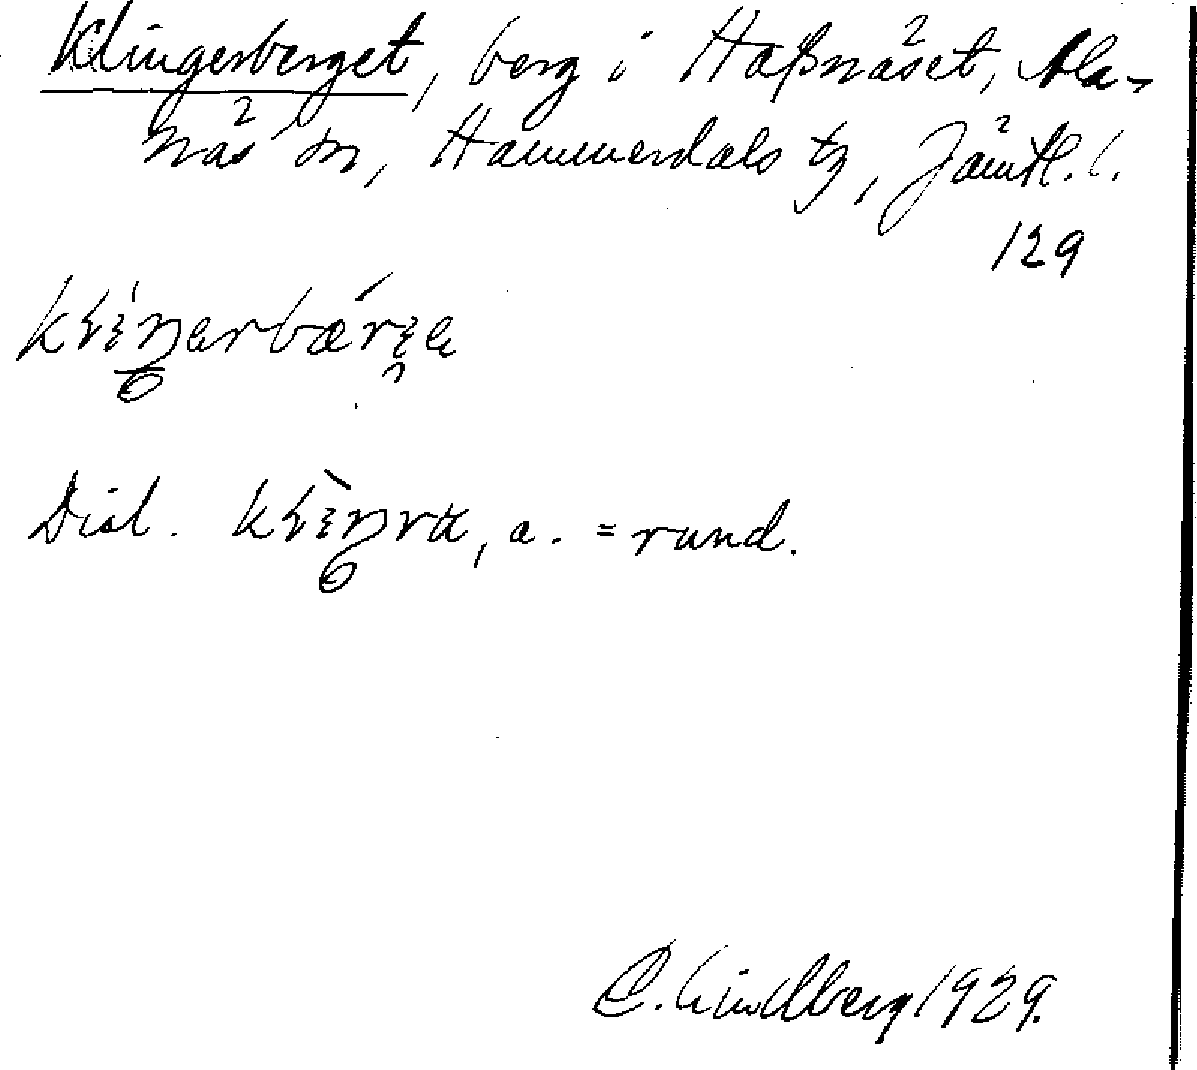 Klingerberget, berg i Hafsnäset, Ala-
näs sn, Hammerdals tg, Jämtl. l.
129
Dial. , a. = rund.
C. Lindberg 1929.